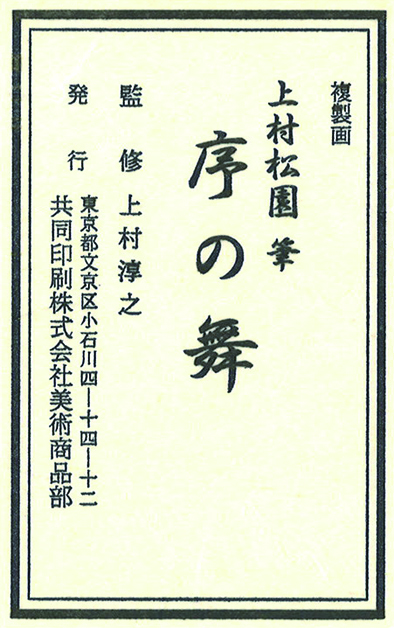 複製画
上村松園 筆
序の舞
監修 上村淳之
発行 東京都文京区小石川四―十四―十二
共同印刷株式会社美術商品部